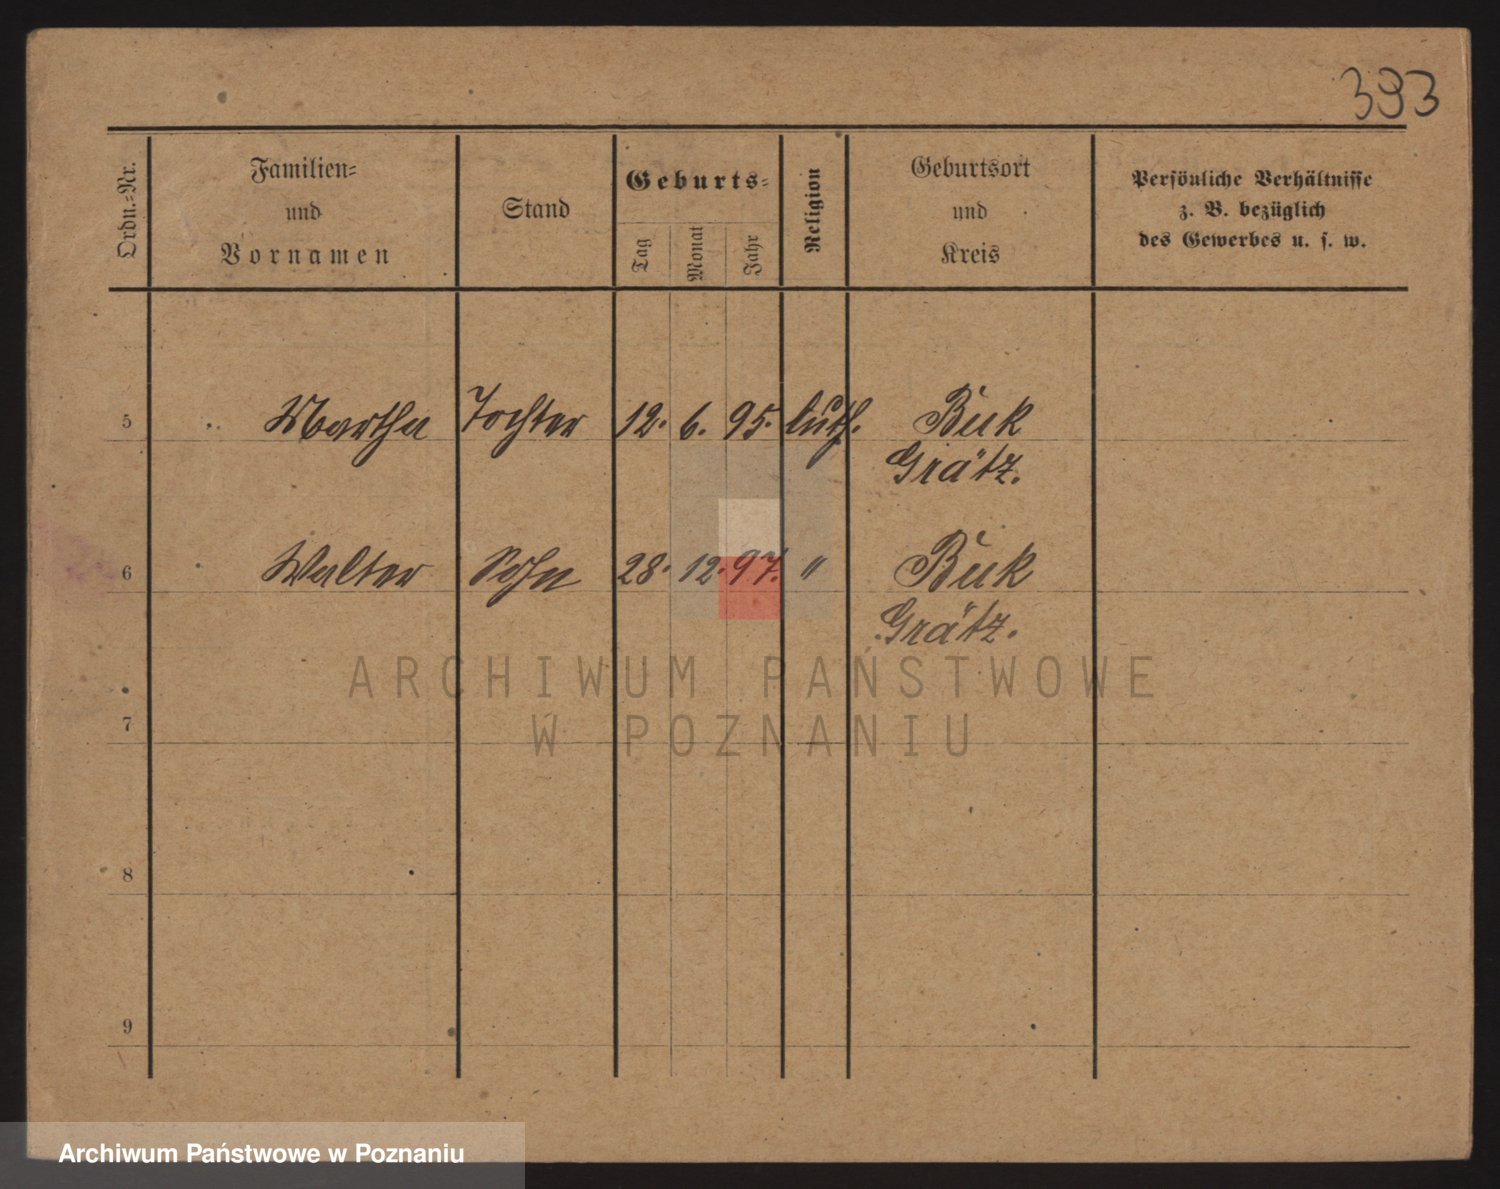 393
Ordn.-Nr.
Familien-
und
Vornamen
Stand
Geburts-
Tag
Monat
Jahr
Religion
Geburtsort
und
Kreis
Persönliche Verhältnisse
z. B. bezüglich
des Gewerbes u. s. w.
5 Martha Tochter 12. 6. 95. luth. Buk
Grätz.
6 Walter Sohn 28. 12. 97. " Buk
Grätz.
7
8
9
ARCHIWUM PAŃSTWOWE
W POZNANIU
Archiwum Państwowe w Poznaniu